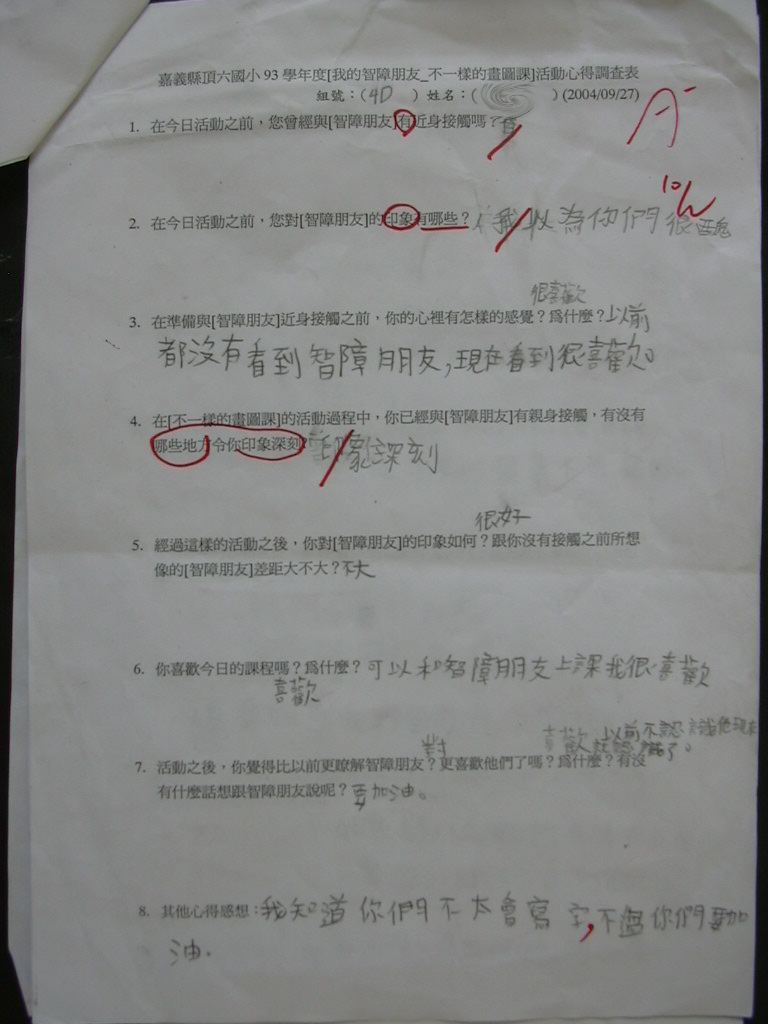 嘉義縣頂六國小93學年度[我的智障朋友_不一樣的畫圖課]活動心得調查表
組號：（4D ）姓名：（ ）(2004/09/27)
A-
1. 在今日活動之前，您曾經與[智障朋友]有近身接觸嗎？有
10/4
2. 在今日活動之前，您對[智障朋友]的印象有哪些？我以為你們很醜
很喜歡
3. 在準備與[智障朋友]近身接觸之前，你的心裡有怎樣的感覺？為什麼？以前
都沒有看到智障朋友，現在看到很喜歡。
4. 在[不一樣的畫圖課]的活動過程中，你已經與[智障朋友]有親身接觸，有沒有
哪些地方令你印象深刻？印象深刻
很好
5. 經過這樣的活動之後，你對[智障朋友]的印象如何？跟你沒有接觸之前所想
像的[智障朋友]差距大不大？不大
6. 你喜歡今日的課程嗎？為什麼？可以和智障朋友上課我很喜歡
喜歡
對 喜歡 以前不認識他現在
就認識了。
7. 活動之後，你覺得比以前更瞭解智障朋友？更喜歡他們了嗎？為什麼？有沒
有什麼話想跟智障朋友說呢？要加油。
8. 其他心得感想：我知道你們不太會寫字，不過你們要加
油.